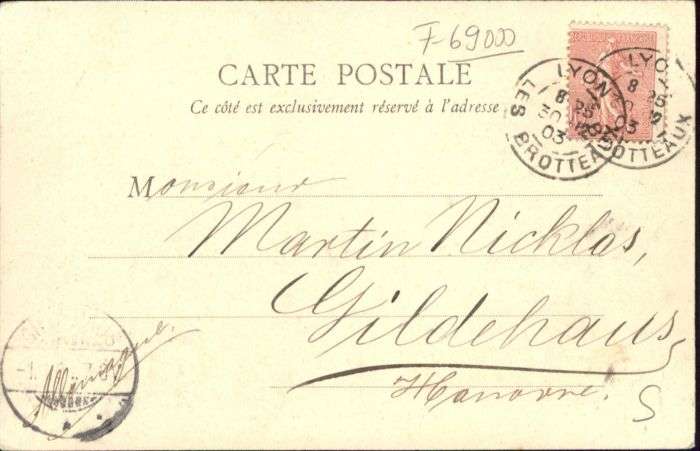 F-69000
CARTE POSTALE
Ce côté est exclusivement réservé à l'adresse
LYON
LES BROTTEAUX
8 25
30
03
LYON
8 25
03
BROTTEAUX
Monsieur
Martin Nicklas,
Gildehaus
Hanovre.
Allemagne.
S